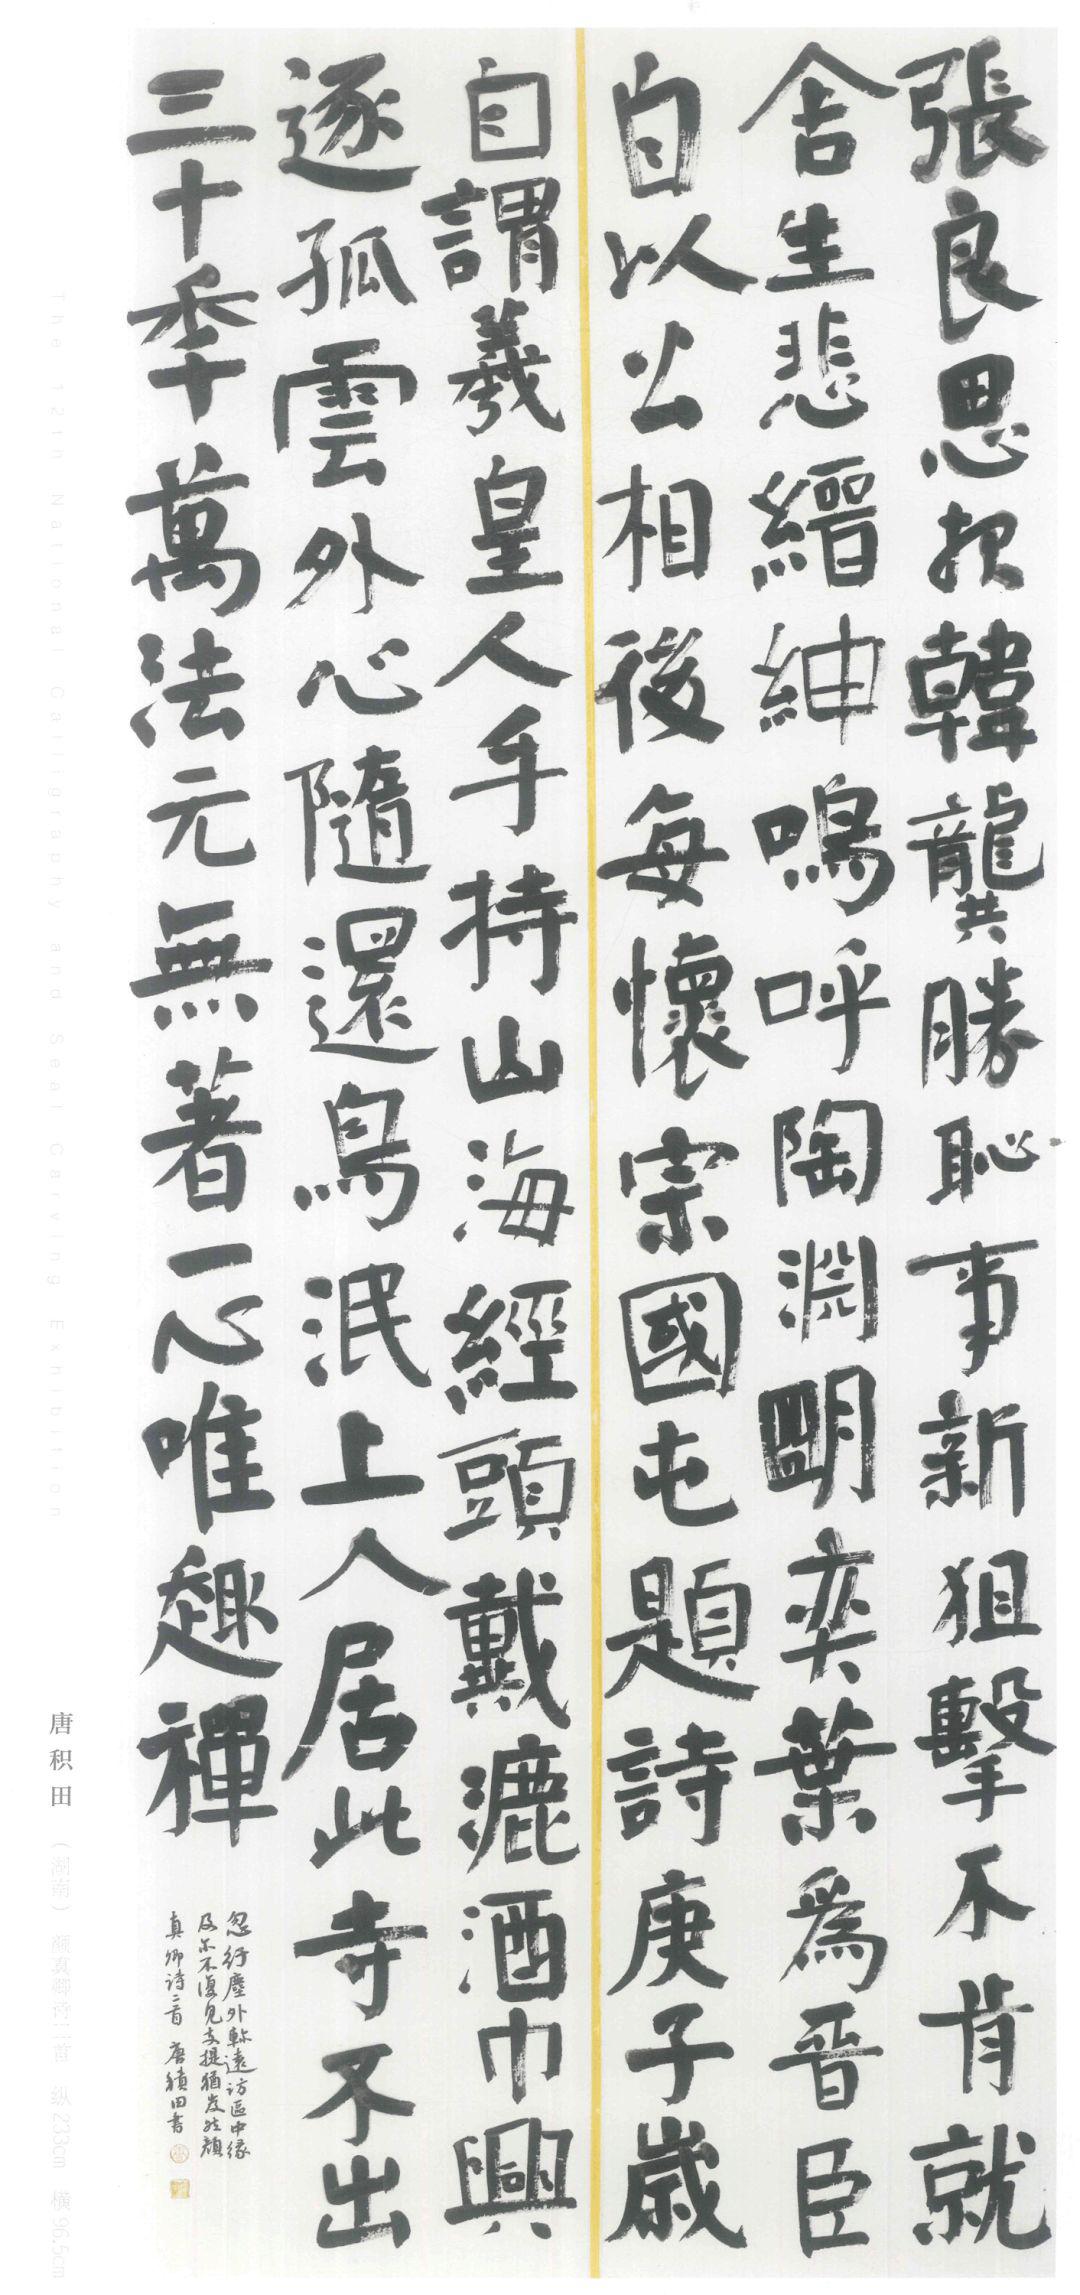 張良思報韓龔勝恥事新狙擊不肯就
舍生悲縉紳嗚呼陶淵明奕葉為晉臣
自以公相後每懷宗國屯題詩庚子歲
自謂羲皇人手持山海經頭戴漉酒巾興
逐孤雲外心隨還鳥泯上人居此寺不出
三十季萬法元無著一心唯趣禪
忽紆塵外軫遠訪區中緣
及尔不復見支提猶岌然顏
真卿詩二首 唐積田書
The 12th National Calligraphy and Seal Carving Exhibition
唐积田 （湖南） 颜真卿诗二首 纵233cm 横96.5cm